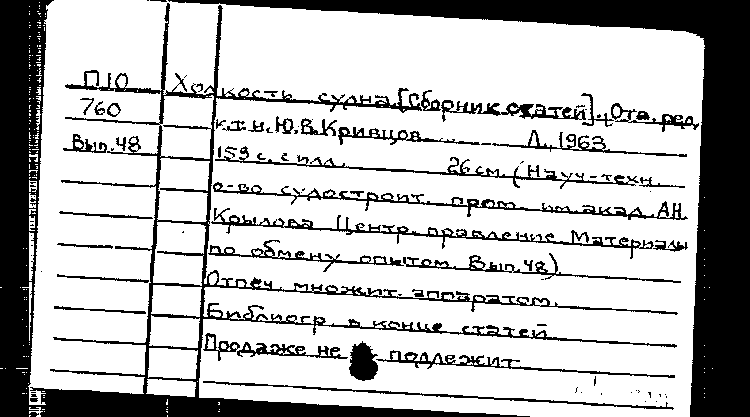 П10 Ходкость судна. [Сборник статей]. Отв. ред.
760 к.т.н. Ю.В. Кривцов. Л., 1963.
Вып. 48 159 с. с илл. 26 см. (Науч-техн.
о-во судостроит. пром. им. акад. А.Н.
Крылова Центр. правление. Материалы
по обмену опытом. Вып. 48).
Отпеч. множит. аппаратом.
Библиогр. в конце статей
Продаже не подлежит